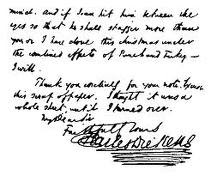 mind. and if I can hit him between the
eyes so that he shall stagger more than
you or I have done this Christmas under
the combined effects of Punch and Turkey —
I will.
Thank you cordially for your note. Excuse
this scrap of paper. I thought it was a
whole sheet, until I turned over.
My Dear Sir
Faithfully Yours
Charles Dickens